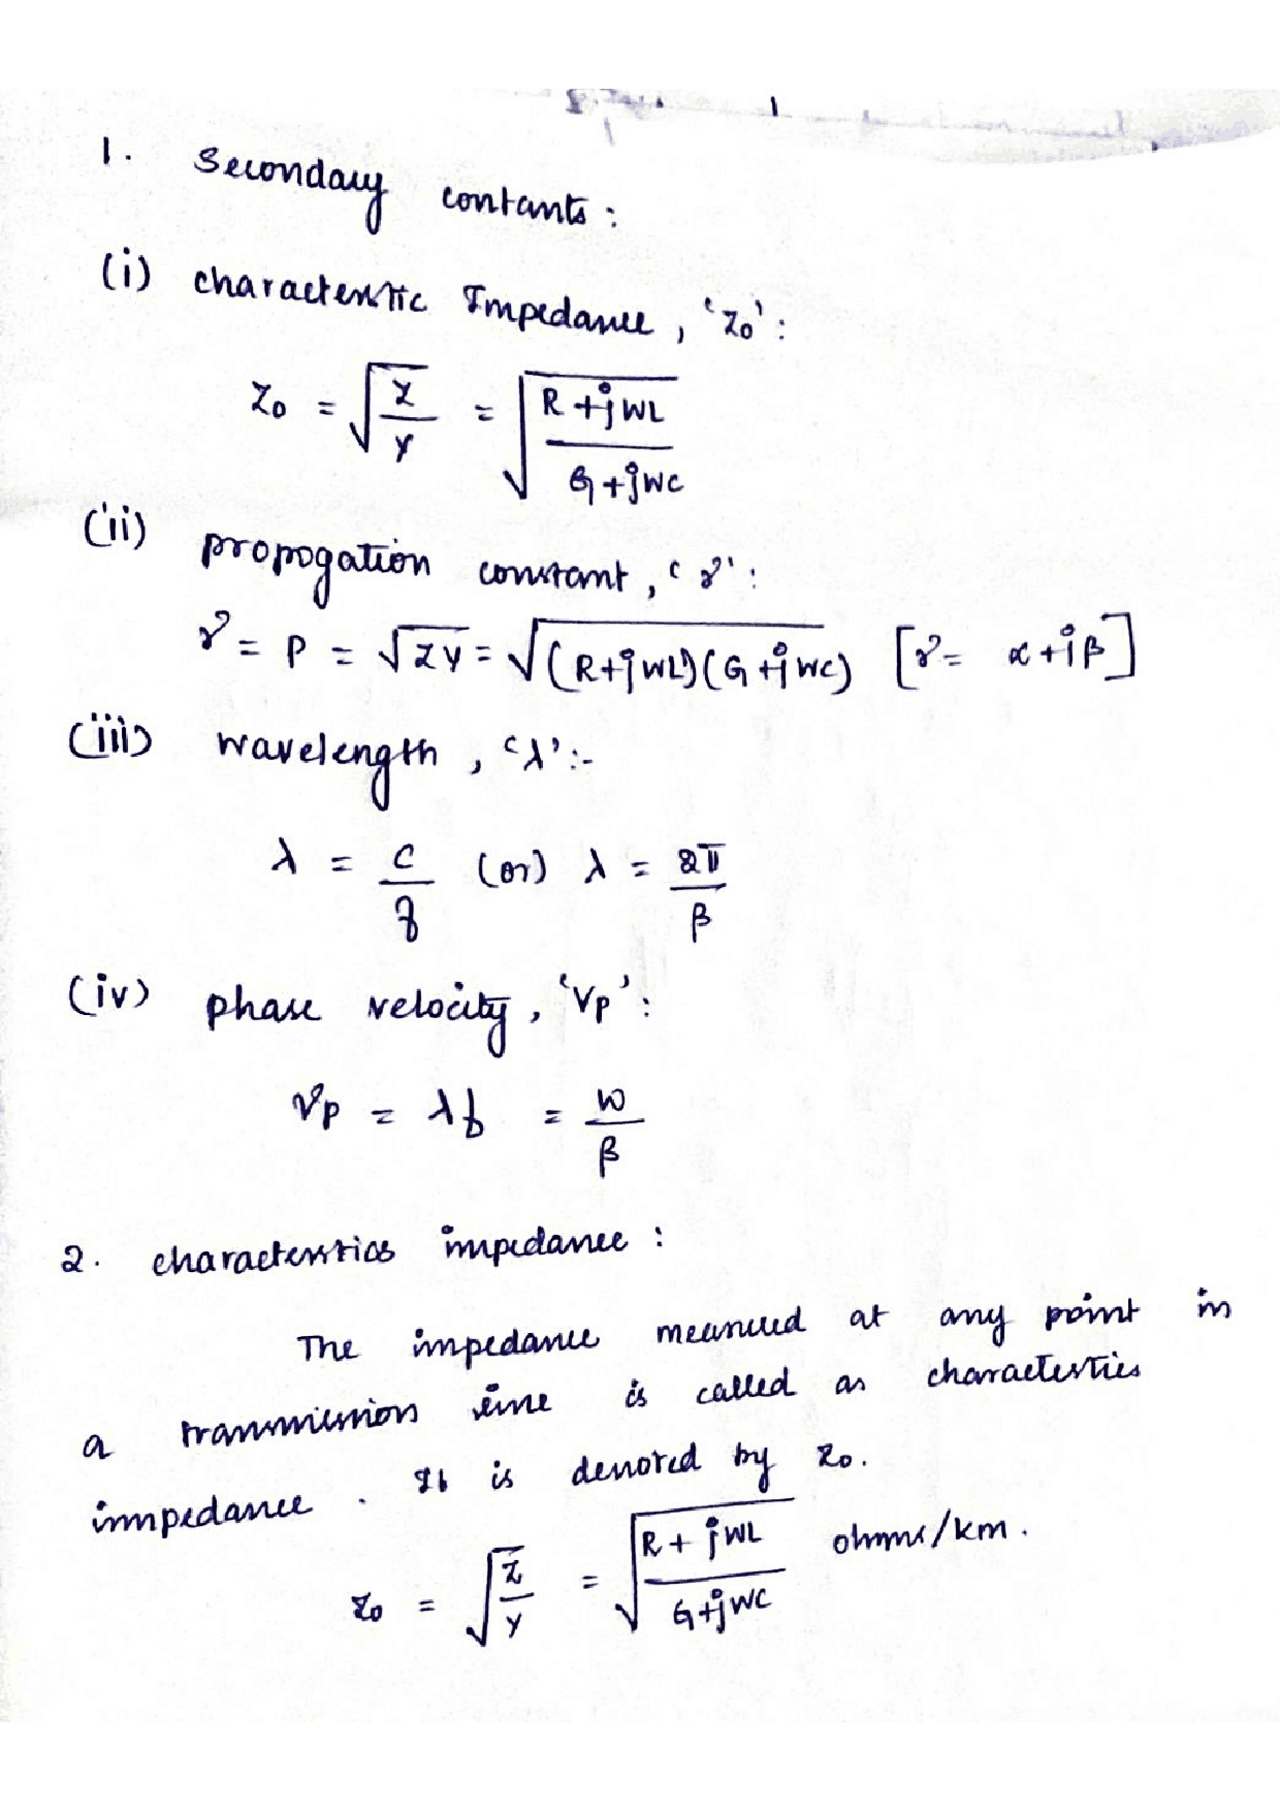 1. Secondary contants :
(i) characteristic Impedance, 'Z₀' :
Z₀ = √(Z/Y) = √((R+jWL)/(G+jWC))
(ii) propogation constant, 'γ' :
γ = P = √ZY = √((R+jWL)(G+jWC)) [γ = α+jβ]
(iii) wavelength, 'λ' :-
λ = C/f (or) λ = 2π/β
(iv) phase velocity, 'Vp' :
Vp = λf = W/β
2. characteristics impedance :
The impedance measured at any point in
a transmission line is called as characteristics
impedance. It is denoted by Z₀.
Z₀ = √(Z/Y) = √((R+jWL)/(G+jWC)) ohms/km.